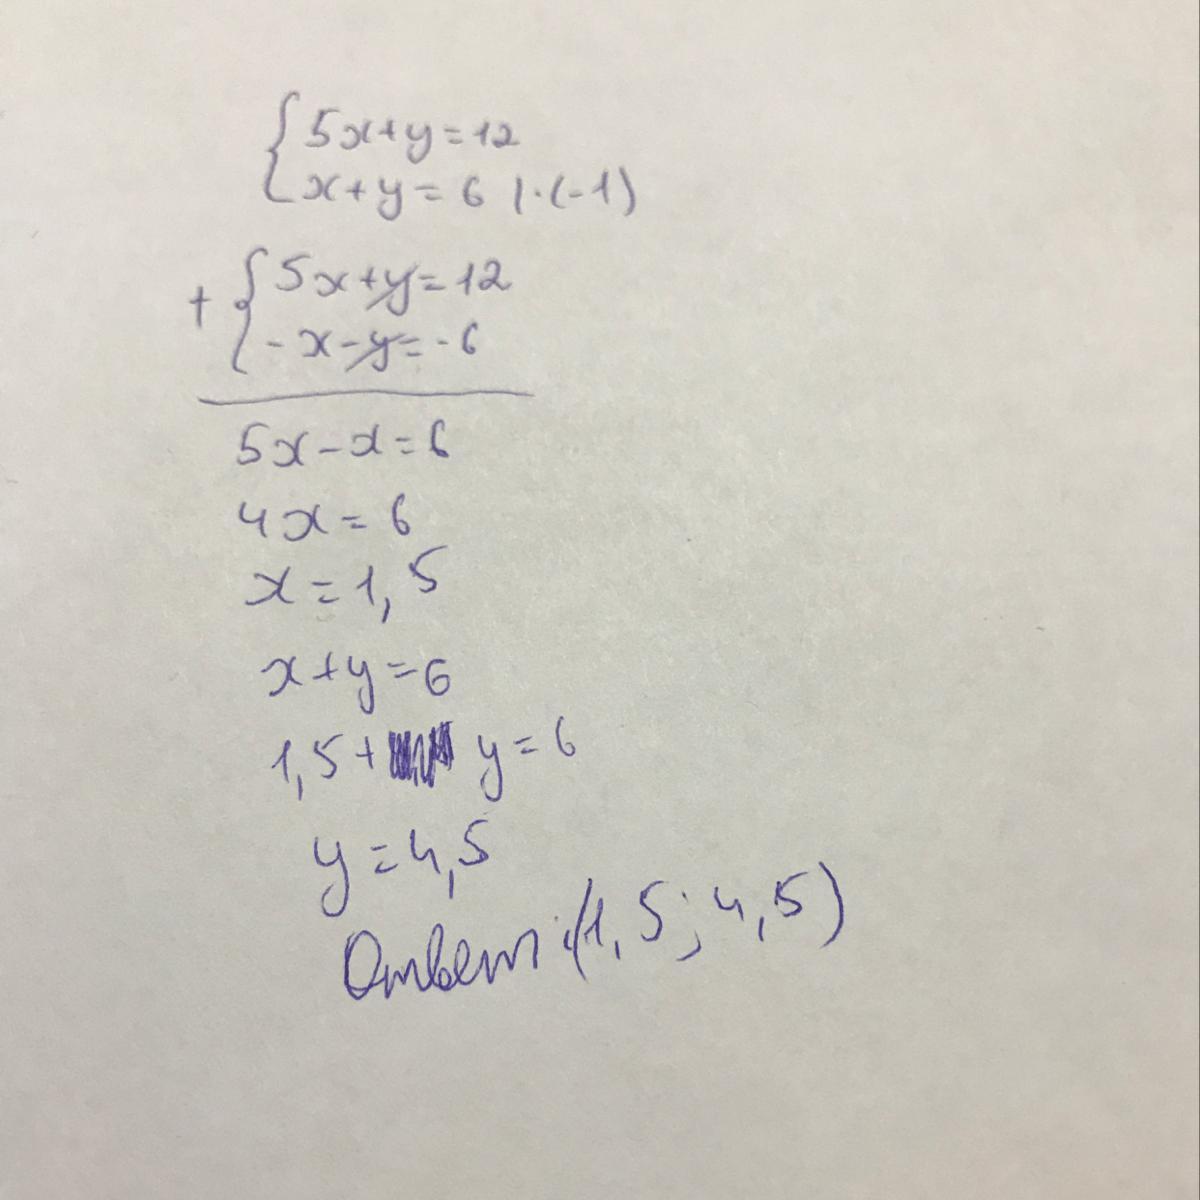 {5x+y=12
{x+y=6 |·(-1)
+ {5x+y=12
{-x-y=-6
5x-x=6
4x=6
x=1,5
x+y=6
1,5+ y=6
y=4,5
Ответ:(1,5;4,5)